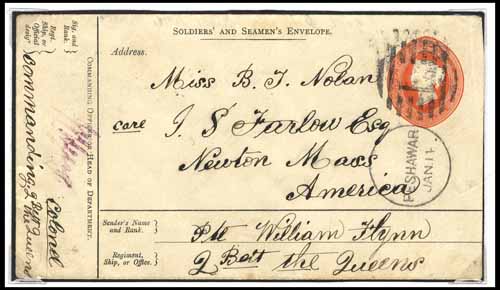 SOLDIERS' AND SEAMEN'S ENVELOPE.
Address.
Miss B. J. Nolan
care J. S Farlow Esq
Newton Mass
America
PESHAWAR
JAN. 11
Sender's Name and Rank.
Pte William Flynn
Regiment, Ship, or Office.
2 Batt the Queens
Sig. and Rank.
Regt. Ship, or Official desig<sup>n</sup>
COMMANDING OFFICER OR HEAD OF DEPARTMENT.
Colonel
Commanding, 2 Batt The Queens